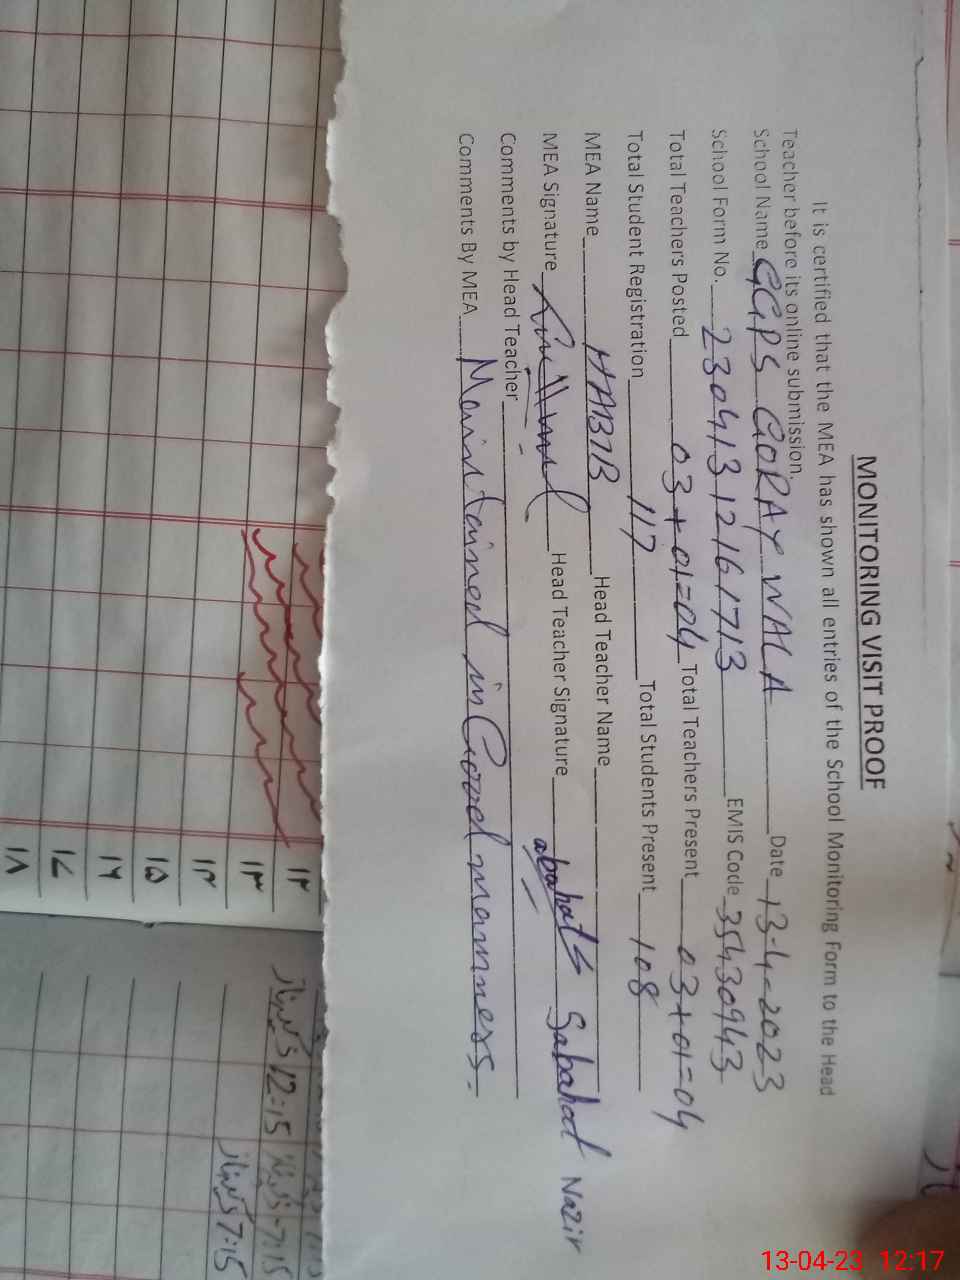 MONITORING VISIT PROOF
It is certified that the MEA has shown all entries of the School Monitoring Form to the Head
Teacher before its online submission.
School Name GGPS GORAY WALA Date 13-4-2023
School Form No. 23041312161713 EMIS Code 35430943
Total Teachers Posted 03+01=04 Total Teachers Present 03+01=04
Total Student Registration 117 Total Students Present 108
MEA Name HABIB Head Teacher Name
MEA Signature Head Teacher Signature Sabahat Nazir
Comments by Head Teacher
Comments By MEA Maintained in Good manness.
۱۲
۱۳
۱۴
۱۵
۱۶
۱۷
۱۸
12:15
7:15
7:15
13-04-23 12:17